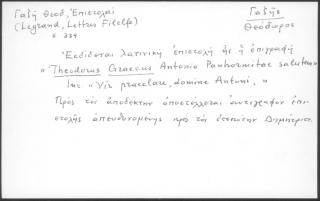 Γαζῆ Θεοδ, Ἐπιστολαί
(Legrand, Lettres Filelfe)
σ 334
Γαζῆς
Θεόδωρος
Ἐκδίδεται λατινικὴ ἐπιστολὴ ἧς ἡ ἐπιγραφὴ
« Theodorus Graecus Antonio Panhormitae salutem »
Inc « Vir praeclare, domine Antoni, »
Πρὸς τὸν ἀποδέκτην ἀποστέλλεται ἀντίγραφον ἐπι-
στολῆς ἀπευθυνομένης πρὸς τὸν δεσπότην Δημήτριον.